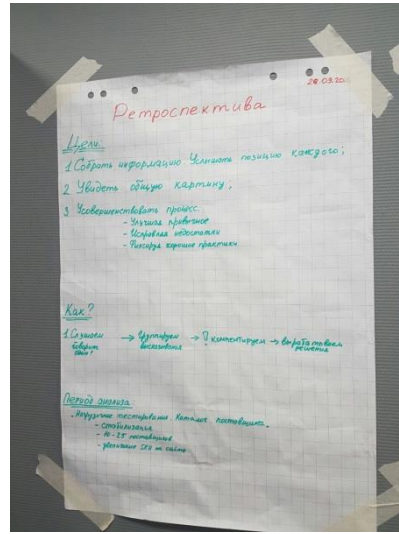 28.03.20
Ретроспектива
Цели:
1 Собрать информацию. Услышать позицию каждого;
2 Увидеть общую картину;
3 Усовершенствовать процесс:
- Улучшая привычное
- Исправляя недостатки
- Фиксируя хорошие практики
Как?
1 Слушаем → Группируем → ? комментируем → вырабатываем
говорит высказывания решения
Период анализа
Нагрузочное тестирование. Каталог поставщика.
- Стабилизация
- 10-25 поставщиков
- увеличение SKU на сайте